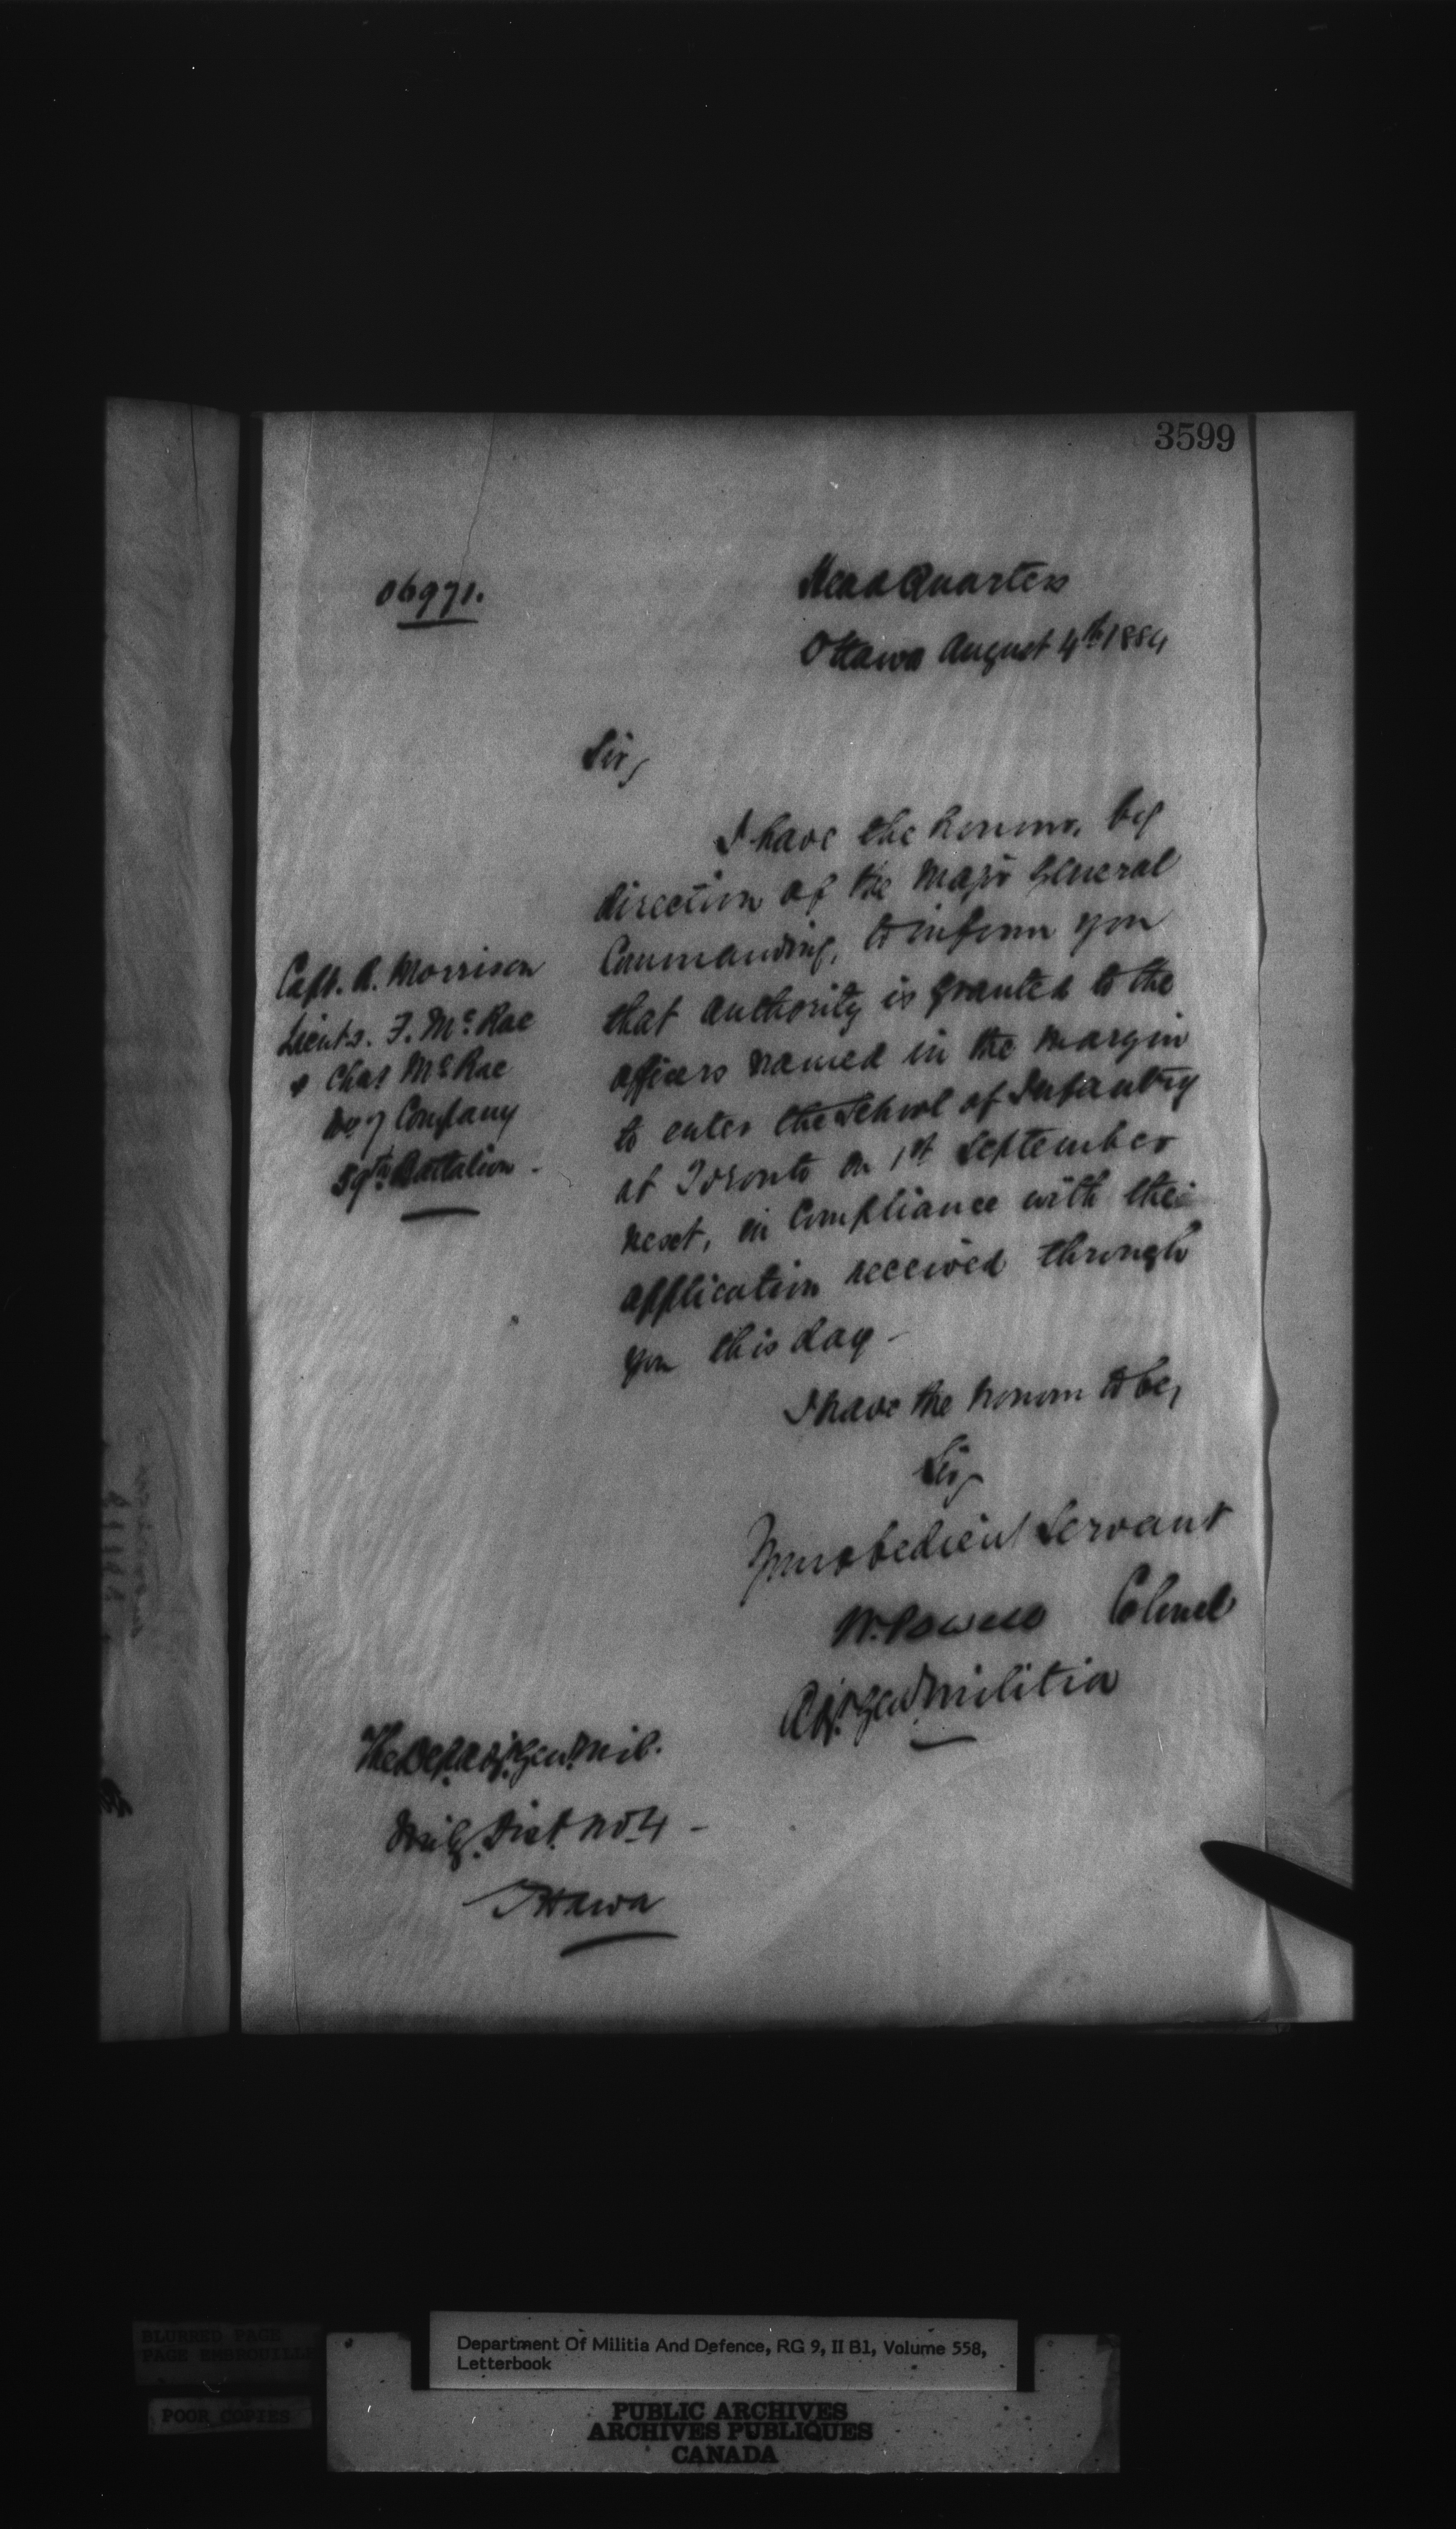 3599
06971.
Head Quarters
Ottawa August 4th 1884
Sir,
I have the honour, by
direction of the Major General
Commanding, to inform you
that authority is granted to the
officers named in the margin
to enter the School of Infantry
at Toronto on 1st September
next, in compliance with their
application received through
you this day -
Capt. A. Morrison
Lieuts. F. McRae
& Chas McRae
No 7 Company
59th Battalion -
I have the honour to be,
Sir,
Your obedient Servant
W. Powell Colonel
Adjt. Genl Militia
The Dep. Adj. Genl. Mil.
Mily. Dist. No. 4 -
Ottawa
BLURRED PAGE
PAGE EMBROUILLEE
POOR COPIES
Department Of Militia And Defence, RG 9, II B1, Volume 558,
Letterbook
PUBLIC ARCHIVES
ARCHIVES PUBLIQUES
CANADA